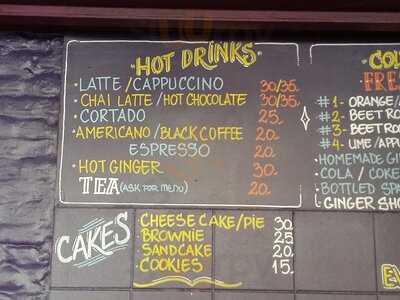 ·HOT DRINKS·
·LATTE/CAPPUCCINO 30/35.
·CHAI LATTE/HOT CHOCOLATE 30/35.
·CORTADO 25.
·AMERICANO/BLACK COFFEE 20.
ESPRESSO 20.
·HOT GINGER 30.
TEA (ASK FOR MENU) 20.
#1- ORANGE/
#2- BEET ROO
#3- BEETROO
#4- LIME/APPL
·HOMEMADE GI
·COLA / COKE
·BOTTLED SPA
·GINGER SHO
CAKES
·CHEESE CAKE/PIE 30.
·BROWNIE 25.
·SANDCAKE 20.
·COOKIES 15.